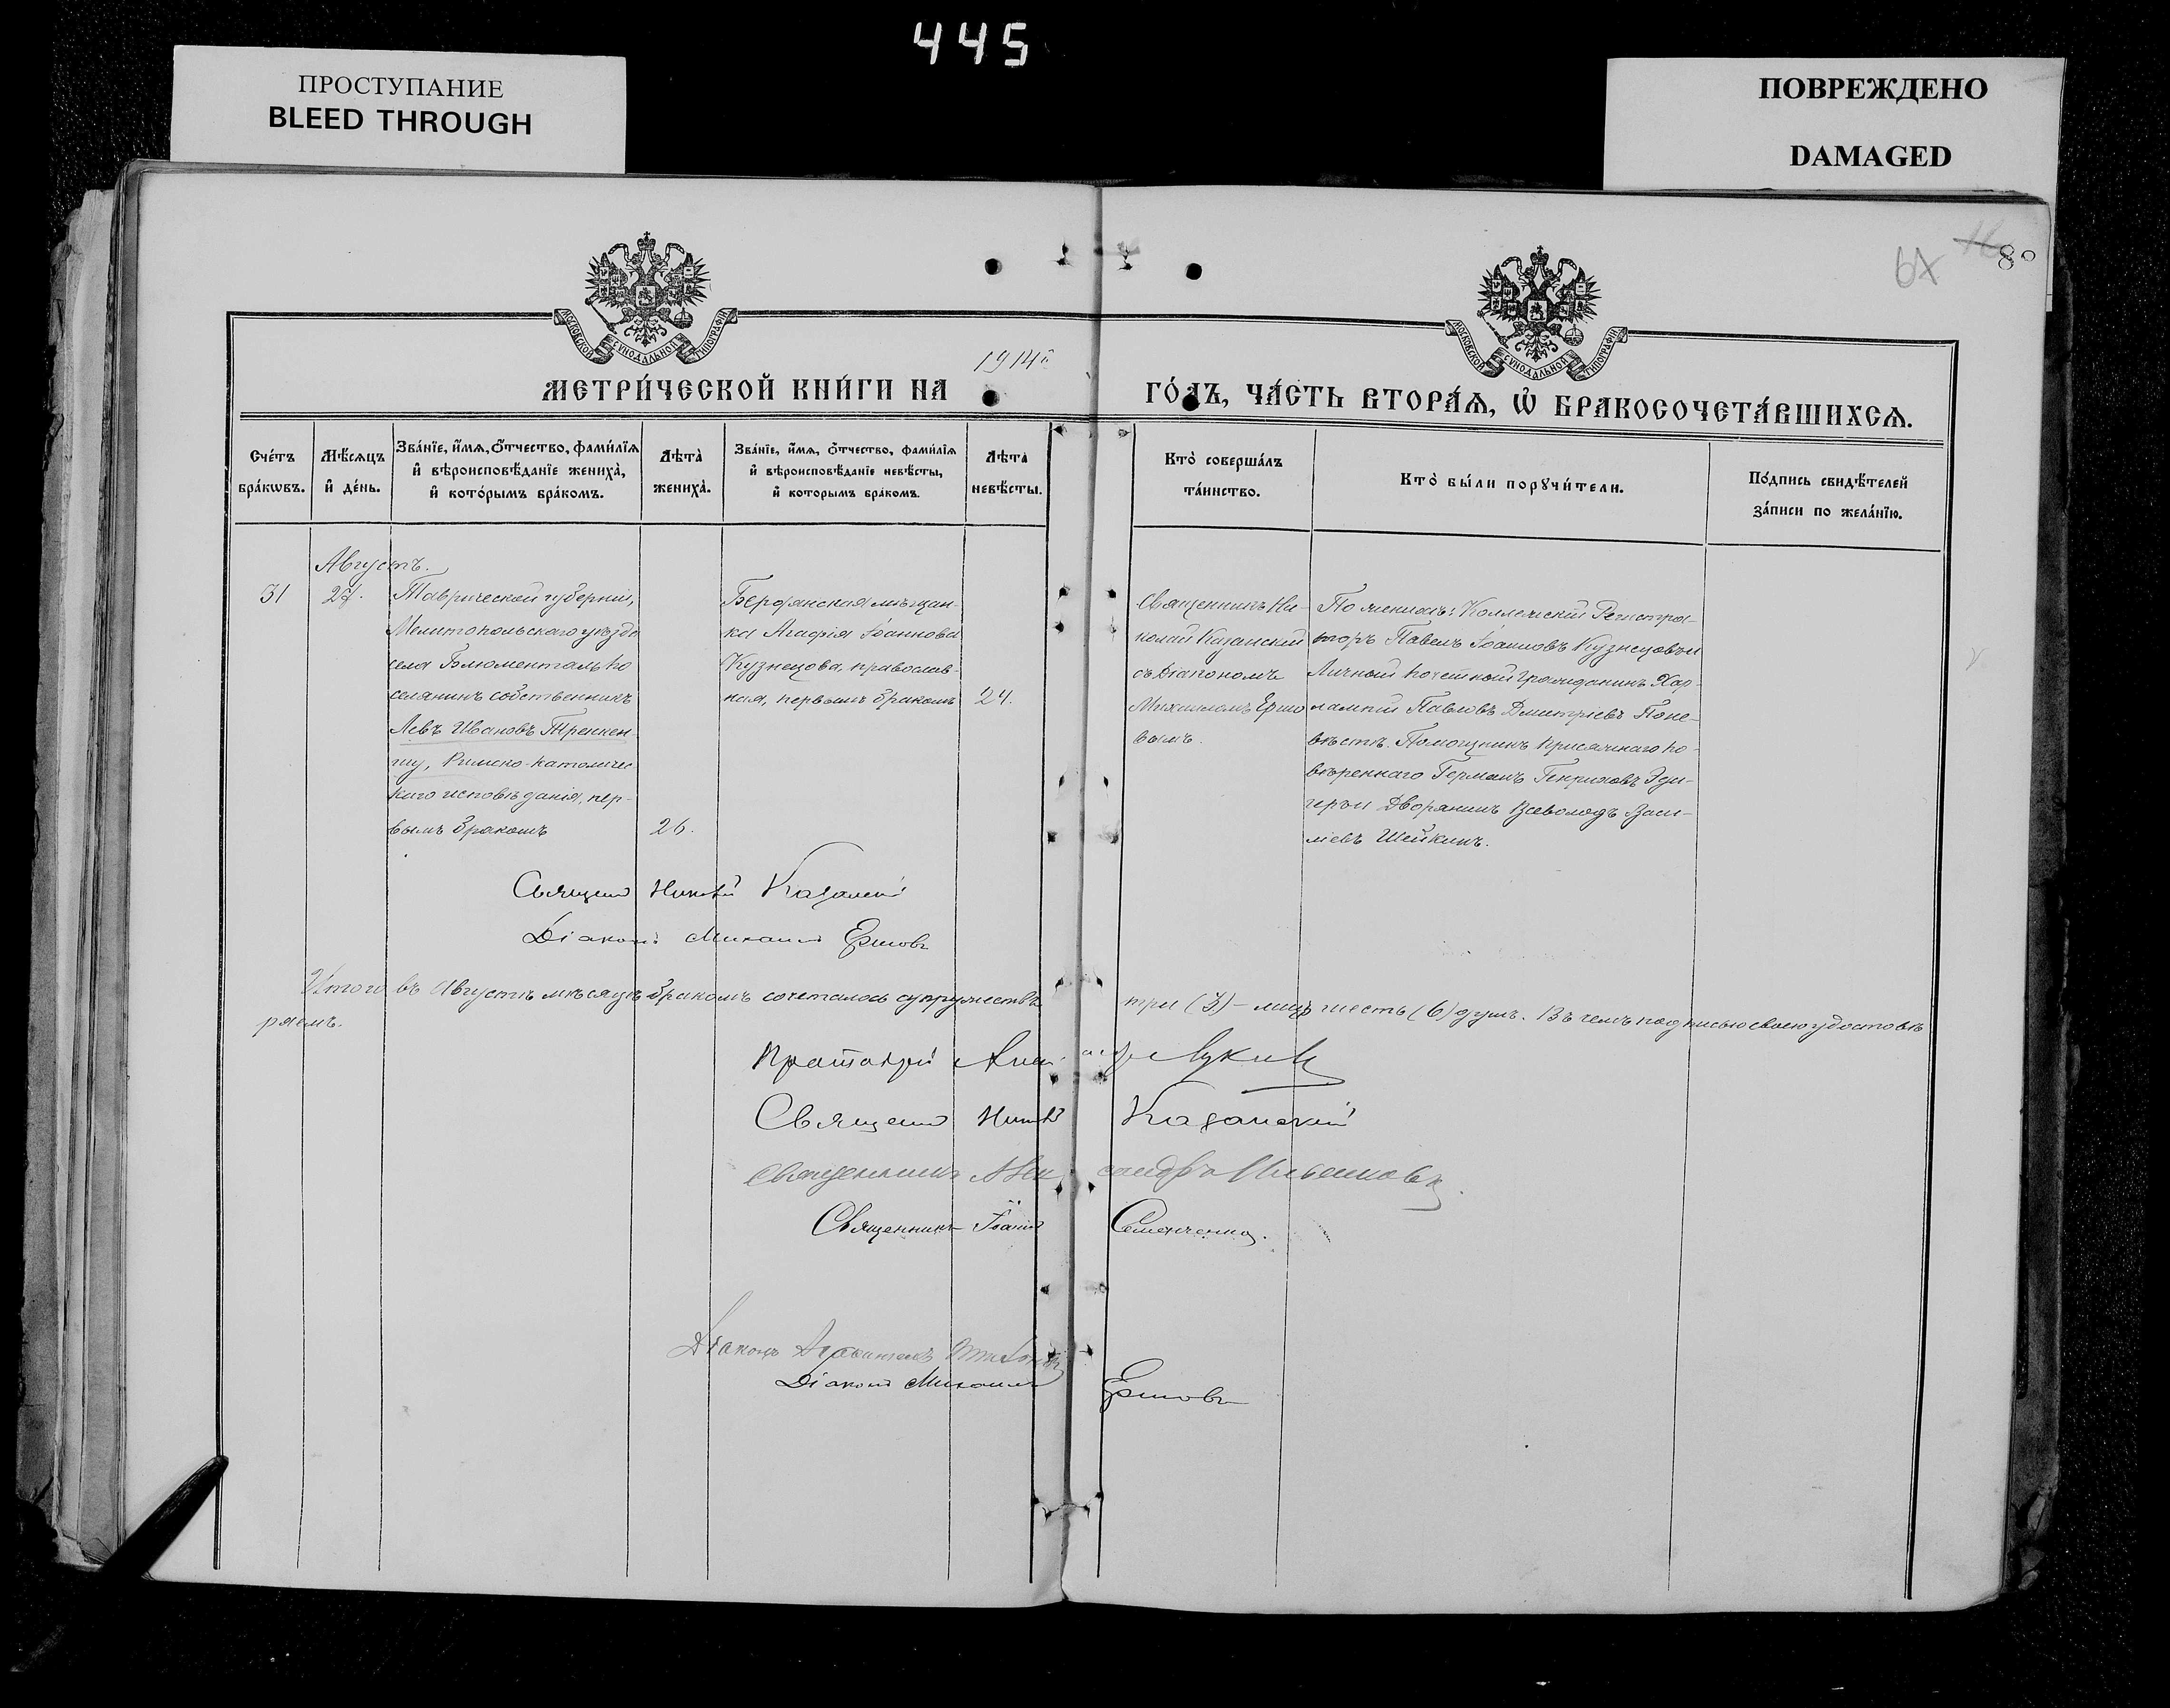 445
ПРОСТУПАНИЕ
BLEED THROUGH
ПОВРЕЖДЕНО
DAMAGED
67
80
МОСКОВСКОЙ СѴНОДАЛЬНОЙ ТИПОГРАФІИ
МОСКОВСКОЙ СѴНОДАЛЬНОЙ ТИПОГРАФІИ
1914
МЕТРИ́ЧЕСКОЙ КНИ́ГИ НА ГО́ДЪ, ЧА́СТЬ ВТОРА́Ѧ, Ѡ БРАКОСОЧЕТА́ВШИХСѦ.
Сче́тъ бра́кѡвъ.
Мѣ́сѧцъ и҆ де́нь.
Зва́нїе, и҆́мѧ, ѻ҆́тчество, фами́лїѧ и҆ вѣроисповѣ́данїе жениха̀, и҆ кото́рымъ бра́комъ.
Лѣта̀ жениха̀.
Зва́нїе, и҆́мѧ, ѻ҆́тчество, фами́лїѧ и҆ вѣроисповѣ́данїе невѣ́сты, и҆ которымъ бра́комъ.
Лѣта̀ невѣ́сты.
Кто̀ соверша́лъ та́инство.
Кто̀ бы́ли порꙋчи́тели.
По́дпись свидѣ́телей за́писи по жела́нїю.
Августъ.
31
27.
Таврической губерніи,
Мелитопольскаго уѣзда
села Блюменталь по
селянинъ собственникъ
Левъ Ивановъ Треккен-
гу, Римско-католичес
каго исповѣданія, пер-
вымъ бракомъ
26.
Бердянская мѣщан-
ка Агафія Іоаннова
Кузнецова, православ-
ная, первымъ бракомъ
24.
Священникъ Ни-
колай Казанскій
съ Діакономъ
Михаиломъ Ершо
вымъ.
По женихѣ: Коллежскій Регистра-
торъ Павелъ Іоанновъ Кузнецовъ и
Личный почетный гражданинъ Хар-
лампій Павловъ Дмитріевъ. По не-
вѣстѣ. Помощникъ Присяжнаго по-
вѣреннаго Германъ Генриховъ Эди-
геръ и Дворянинъ Всеволодъ Васи-
ліевъ Шейкинъ.
Священ Николай Казанскій
Діаконъ Михаилъ Ершовъ
Итого въ Августѣ мѣсяцѣ бракомъ сочеталось супружествъ три (3) - лицъ шесть (6) душъ. Въ чемъ подписью своею удостовѣ
ряемъ.
Протоіерей Лукин
Священ Николай Казанскій
Священникъ Александръ Ильенковъ.
Священникъ Іоаннъ Семенченко.
Діаконъ
Діаконъ Михаилъ Ершовъ